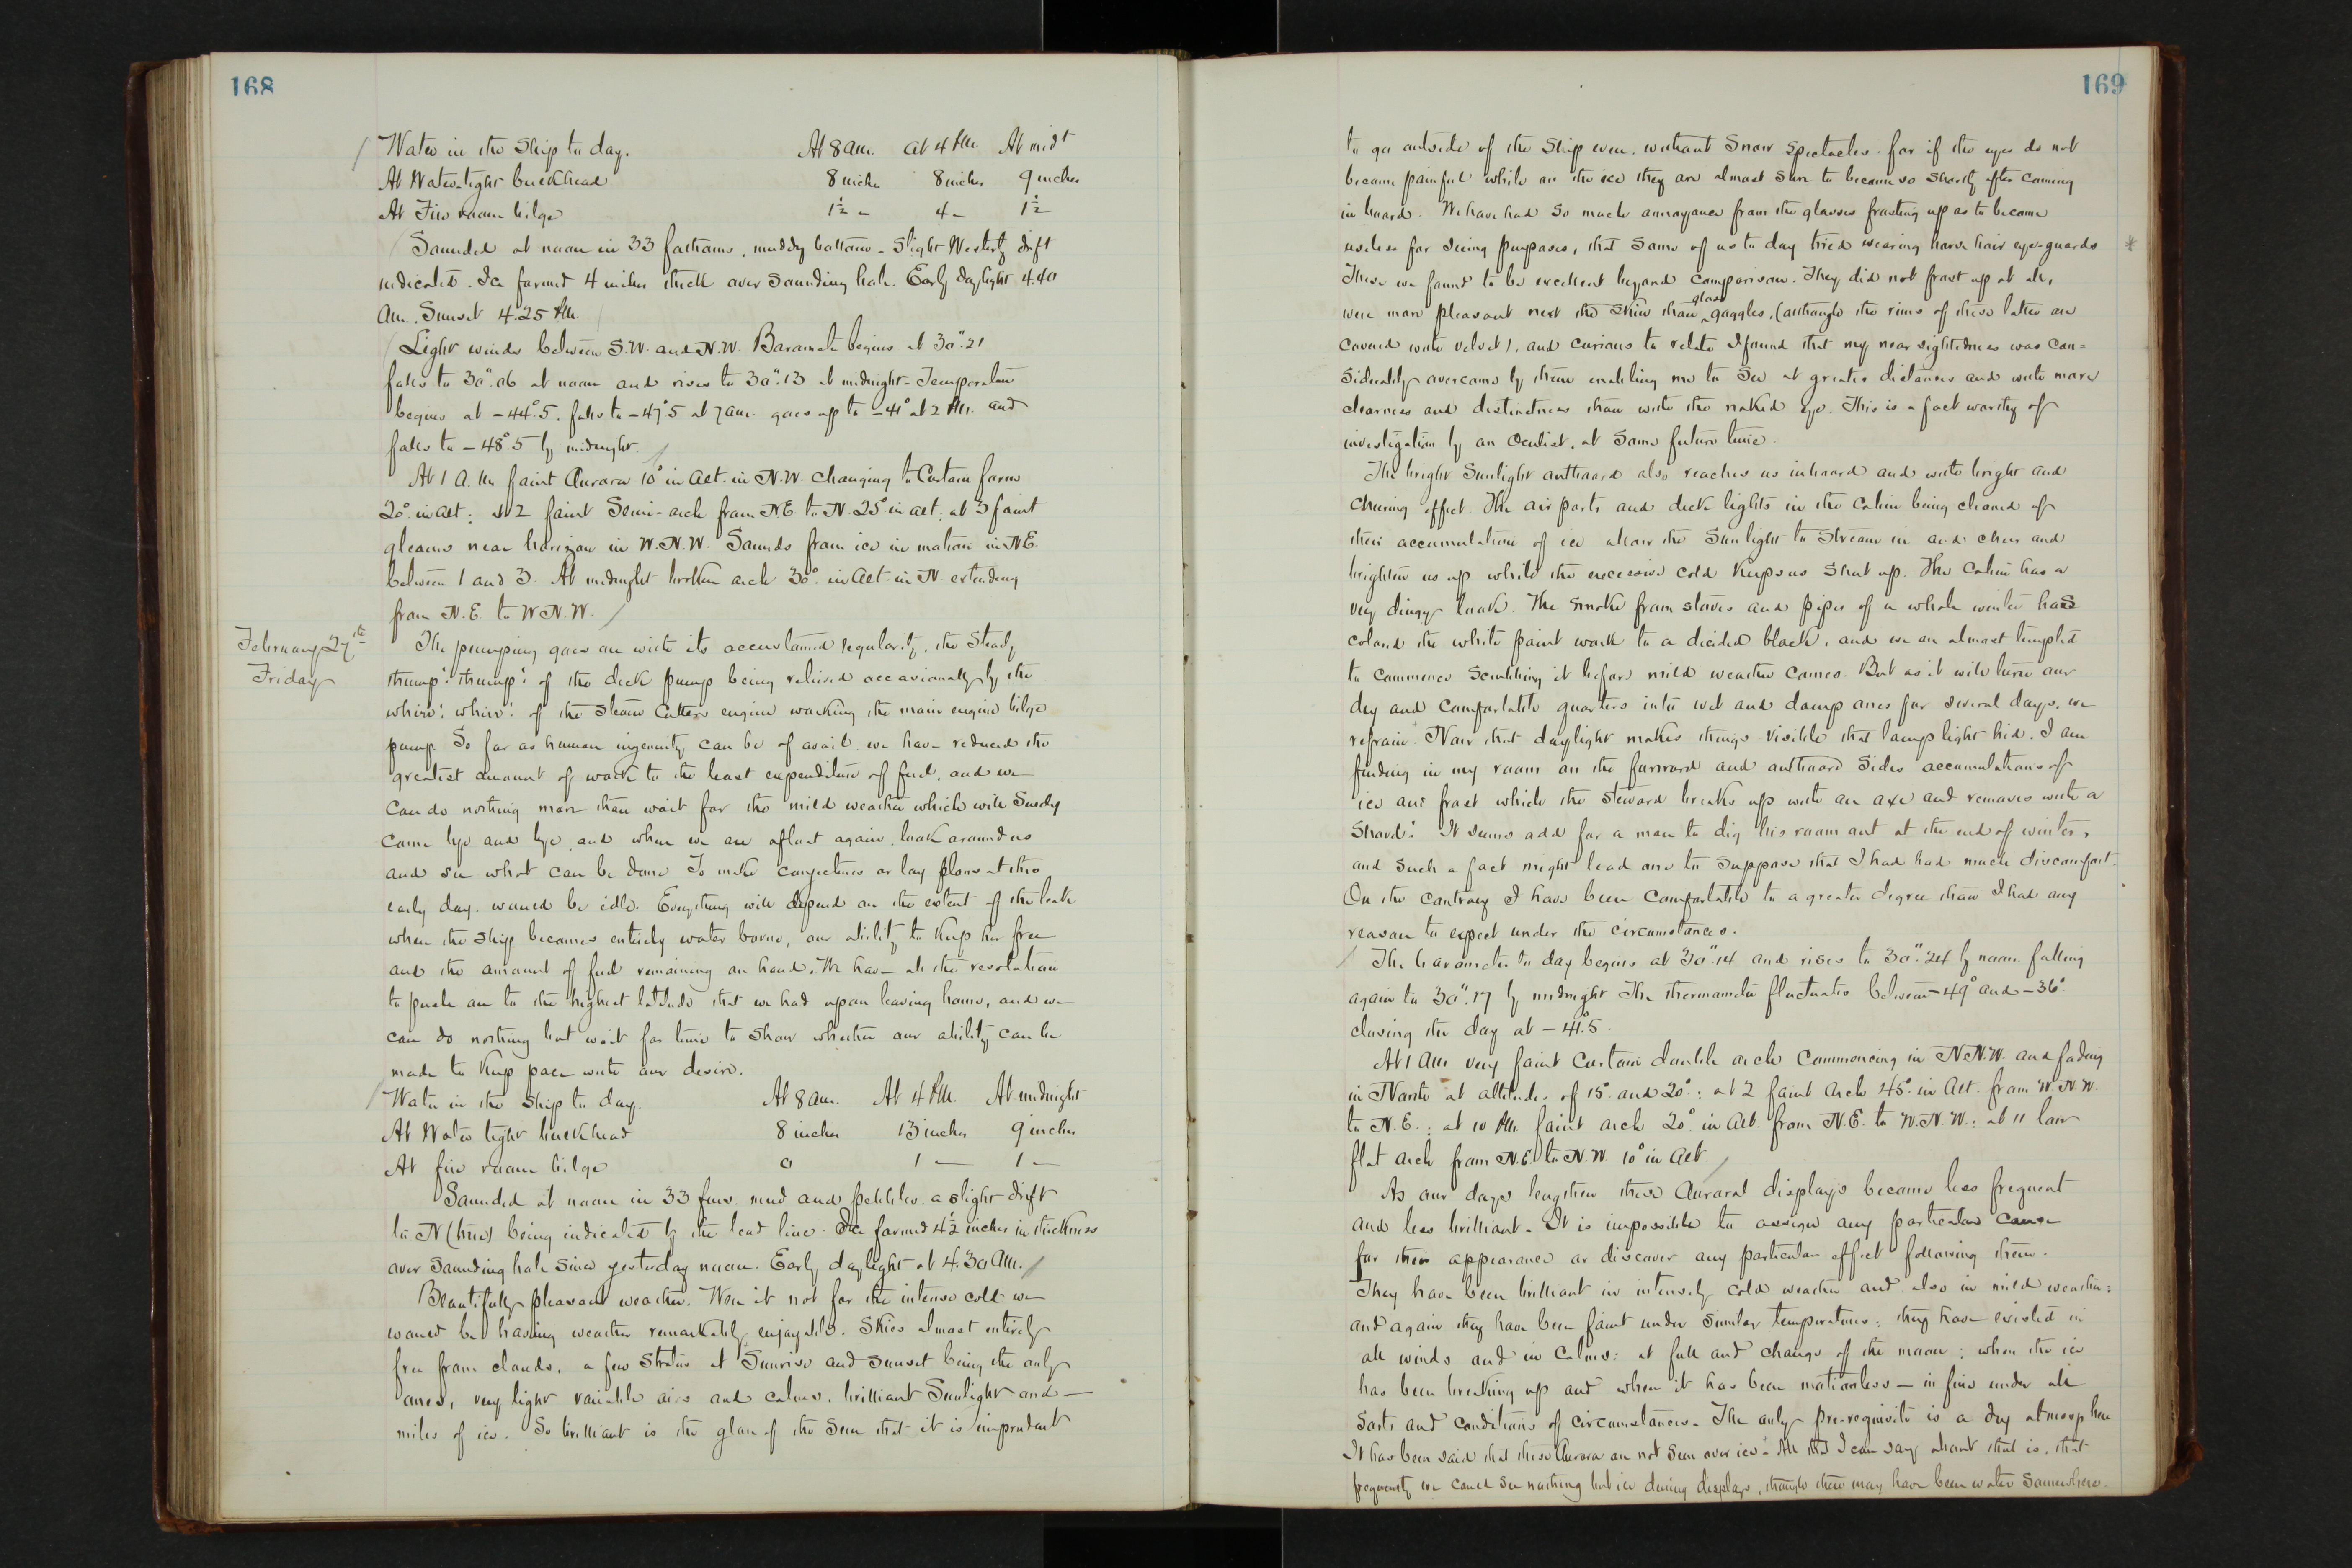 168
Water in the Ship to day. At 8 am. at 4 P.M. At midt
At Water-tight bulkhead 8 inches 8 inches 9 inches
At Fire room bilge 1½ - 4 - 1½
Sounded at noon in 33 fathoms, muddy bottom - Slight Westerly drift
indicated. Ice formed 4 inches thick over sounding hole. Early daylight 4.40
am. Sunset 4.25 P.M.
Light winds between S.W. and N.W. Barometer begins at 30".21
falls to 30".06 at noon and rises to 30".13 at midnight - Temperature
begins at -44°.5, falls to -47°.5 at 7 am. goes up to -41° at 2 P.M. and
falls to -48°.5 by midnight.
At 1 A.M. faint Aurora 10° in alt. in N.W. changing to Curtain form
20° in alt: at 2 faint Semi-arch from N.E to N. 25° in alt: at 3 faint
gleams near horizon in W.N.W. Sounds from ice in motion in N.E.
between 1 and 3. At midnight broken arch 30° in alt. in N. extending
from N.E. to W.N.W.
February 27th
Friday
The pumping goes on with its accustomed regularity, the steady
thump! thump! of the deck pump being relieved occasionally by the
whirr! whirr! of the Steam Cutters engine working the main engine bilge
pump. So far as human ingenuity can be of avail we have reduced the
greatest amount of work to the least expenditure of fuel, and we
can do nothing more than wait for the mild weather which will surely
come bye and bye, and when we are afloat again, look around us
and see what can be done. To make conjectures or lay plans at this
early day would be idle. Everything will depend on the extent of the leak
when the ship becomes entirely water borne, our ability to keep her free
and the amount of fuel remaining on hand. We have all the resolution
to push on to the highest latitude that we had upon leaving home, and we
can do nothing but wait for time to show whether our ability can be
made to keep pace with our desire.
Water in the Ship to day. At 8 am. At 4 P.M. At midnight
At Water tight bulkhead 8 inches 13 inches 9 inches
At fire room bilge 0 1 — 1 —
Sounded at noon in 33 fms. mud and pebbles. a slight drift
to N (true) being indicated by the lead line. Ice formed 4½ inches in thickness
over sounding hole since yesterday noon. Early daylight at 4.30 AM.
Beautifully pleasant weather. Were it not for the intense cold we
would be having weather remarkably enjoyable. Skies almost entirely
free from clouds, a few Stratus at Sunrise and sunset being the only
ones, very light variable airs and calms, brilliant Sunlight and —
miles of ice. So brilliant is the glare of the Sun that it is imprudent
169
to go outside of the Ship even, without Snow Spectacles. for if the eyes do not
become painful while on the ice they are almost sure to become so shortly after coming
in board. We have had so much annoyance from the glasses frosting up as to become
useless for seeing purposes, that some of us to day tried wearing horse hair eye-guards *
These we found to be excellent beyond comparison. They did not frost up at all,
glass
were more pleasant next the skin than ^ goggles, (although the rims of these latter are
covered with velvet), and curious to relate I found that my near sightedness was con=
siderably overcome by them enabling me to see at greater distances and with more
clearness and distinctness than with the naked eye. This is a fact worthy of
investigation by an Oculist, at some future time.
The bright Sunlight outboard also reaches us inboard and with bright and
cheering effect. The air ports and deck lights in the Cabin being cleared of
their accumulation of ice allow the Sunlight to stream in and cheer and
brighten us up while the excessive cold keeps us shut up. The Cabin has a
very dingy look. The smoke from stoves and pipes of a whole winter has
colored the white paint work to a decided black, and we are almost tempted
to commence scrubbing it before mild weather comes. But as it will turn our
dry and comfortable quarters into wet and damp ones for several days, we
refrain. Now that daylight makes things visible that lamp light hid, I am
finding in my room on the forward and outboard sides accumulations of
ice and frost which the steward breaks up with an axe and removes with a
shovel! It seems odd for a man to dig his room out at the end of winter,
and such a fact might lead one to suppose that I had had much discomfort.
On the contrary I have been comfortable to a greater degree than I had any
reason to expect under the circumstances.
The barometer to day begins at 30".14 and rises to 30".24 by noon falling
again to 30".17 by midnight. The thermometer fluctuates between -49° and -36°.
closing the day at -41°.5.
At 1 am very faint Curtain double arch commencing in N.N.W. and fading
in North at altitudes of 15° and 20°: at 2 faint Arch 45° in Alt. from W.N.W.
to N.E.: at 10 P.M. faint arch 20° in Alt. from N.E. to W.N.W.: at 11 low
flat arch from N.E. to N.W. 10° in Alt.
As our days lengthen these Auroral displays become less frequent
and less brilliant. It is impossible to assign any particular cause
for their appearance or discover any particular effect following them.
They have been brilliant in intensely cold weather and also in mild weather:
and again they have been faint under similar temperatures: they have existed in
all winds and in calms: at full and change of the moon: when the ice
has been breaking up and when it has been motionless — in fine under all
sorts and conditions of circumstances. The only pre-requisite is a dry atmosphere
It has been said that these Aurora are not seen over ice - All that I can say about that is, that
frequently we could see nothing but ice during displays, though there may have been water somewhere.